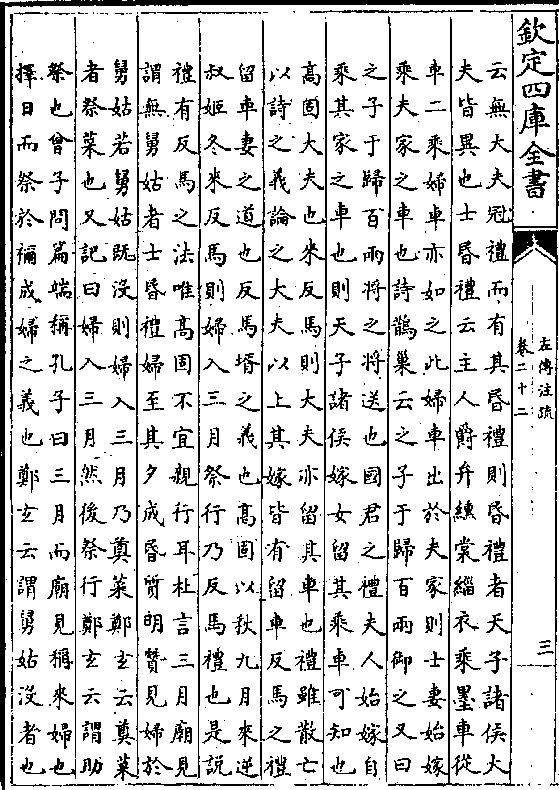 欽定四庫全書
左傳注疏
卷二十二
三
云無大夫冠禮而有其昏禮則昏禮者天子諸侯大
夫皆異也士昏禮云主人爵弁纁裳緇衣乘墨車從
車二乘婦車亦如之此婦車出於夫家則士妻始嫁
乘夫家之車也詩鵲巢云之子于歸百兩御之又曰
之子于歸百兩將之將送也國君之禮夫人始嫁自
乘其家之車也則天子諸侯嫁女留其乘車可知也
高固大夫也來反馬則大夫亦留其車也禮雖散亡
以詩之義論之大夫以上其嫁皆有留車反馬之禮
留車妻之道也反馬壻之義也高固以秋九月來逆
叔姬冬來反馬則婦入三月祭行乃反馬禮也是說
禮有反馬之法唯高固不宜親行耳杜言三月廟見
謂無舅姑者士昏禮婦至其夕成昏質明贊見婦於
舅姑若舅姑既沒則婦入三月乃奠菜鄭玄云奠菜
者祭菜也又記曰婦入三月然後祭行鄭玄云謂助
祭也曾子問篇端稱孔子曰三月而廟見稱來婦也
擇日而祭於禰成婦之義也鄭玄云謂舅姑沒者也